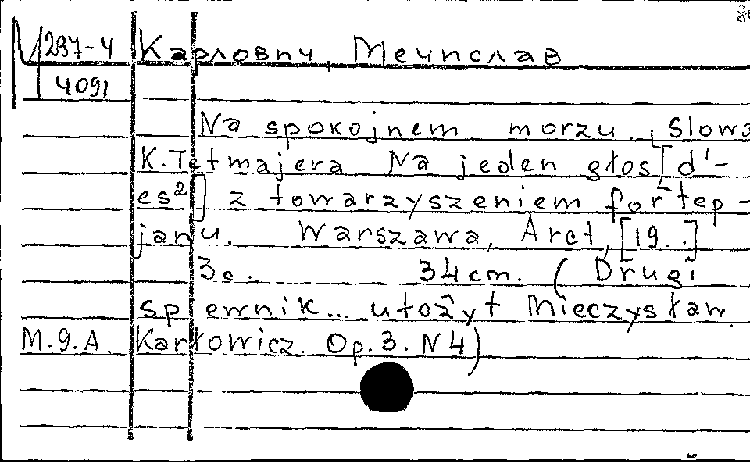 М 297-4 Карлович, Мечислав
4091
Na spokojnem morzu. Slowa
K. Tetmajera Na jeden głos [d'-
es²] z towarzyszeniem fortep-
janu. Warszawa, Arct, [19..]
3c. 34cm. (Drugi
spiewnik... ułożył Mieczysław
М.9.А Karłowicz Op.3. N4)